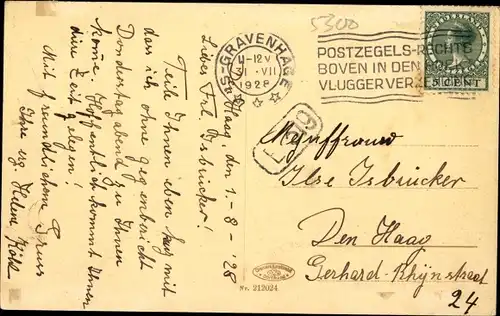 5300
'S-GRAVENHAGE
11-12 V
31.VII
1928
POSTZEGELS-RECHTS
BOVEN IN DEN HOEK
VLUGGER VER
5 CENT
Den Haag, den 1-8-'28
Liebes Frl. Isbrücker!
Teile Ihnen eben kurz mit
das ich ohne gegenbericht
Donderstag abend zu Ihnen
komme. Hoffentlich kommt Ihnen
die Zeit gelegen!
Mit freundlichem Gruss
Ihre erg. Helene
Mejuffrouw
Ilse Isbrücker
Den Haag
Gerhard-Rhijnstraat
24
Nr. 212024